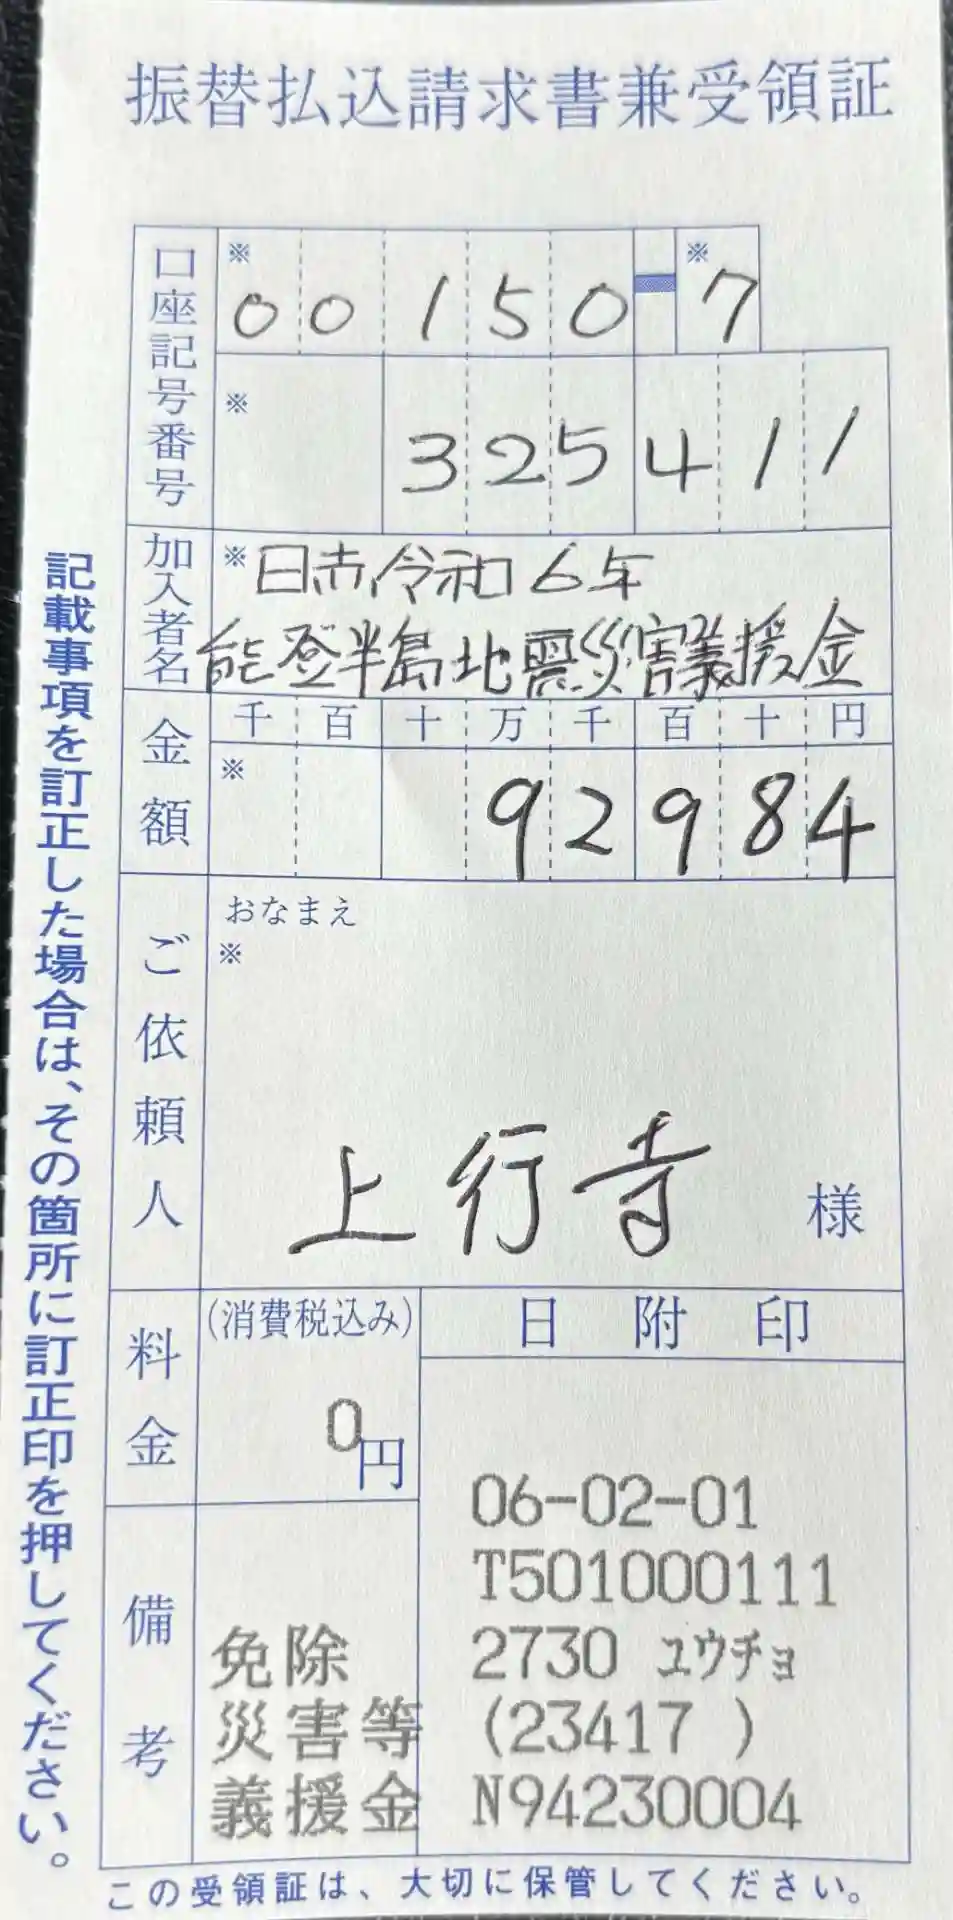 振替払込請求書兼受領証
口座記号番号
※ 00150-※7
※ 325411
加入者名
※日赤令和6年
能登半島地震災害義援金
金額
千百十万千百十円
※ 92984
ご依頼人
おなまえ
※
上行寺 様
料金
(消費税込み)
0円
日附印
06-02-01
T501000111
2730 ユウチョ
(23417 )
N94230004
備考
免除
災害等
義援金
記載事項を訂正した場合は、その箇所に訂正印を押してください。
この受領証は、大切に保管してください。